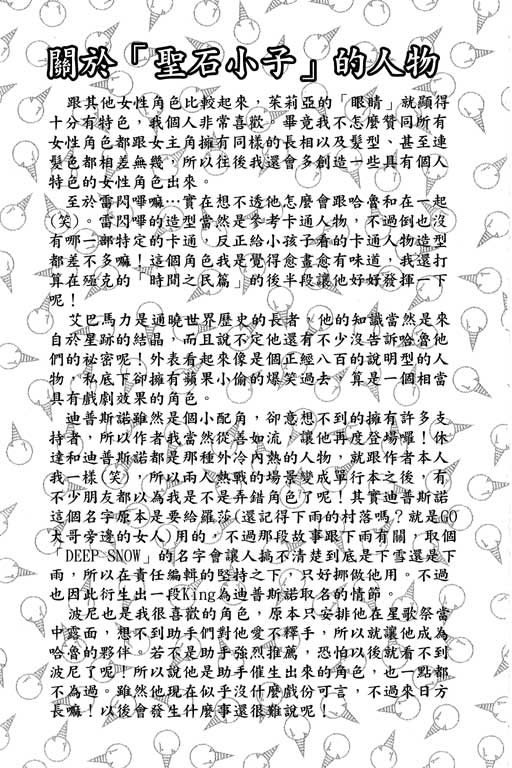 關於「聖石小子」的人物
跟其他女性角色比較起來，茱莉亞的「眼睛」就顯得
十分有特色，我個人非常喜歡。畢竟我不怎麼贊同所有
女性角色都跟女主角擁有同樣的長相以及髮型、甚至連
髮色都相差無幾，所以往後我還會多創造一些具有個人
特色的女性角色出來。
至於雷閃嗶嘛…實在想不透他怎麼會跟哈魯和在一起
(笑)。雷閃嗶的造型當然是參考卡通人物，不過倒也沒
有哪一部特定的卡通，反正給小孩子看的卡通人物造型
都差不多嘛！這個角色我是覺得愈畫愈有味道，我還打
算在殛克的「時間之民篇」的後半段讓他好好發揮一下
呢！
艾巴馬力是通曉世界歷史的長者，他的知識當然是來
自於星跡的結晶，而且說不定他還有不少沒告訴哈魯他
們的秘密呢！外表看起來像是個正經八百的說明型的人
物，私底下卻擁有蘋果小偷的爆笑過去，算是一個相當
具有戲劇效果的角色。
迪普斯諾雖然是個小配角，卻意想不到的擁有許多支
持者，所以作者我當然從善如流，讓他再度登場囉！休
達和迪普斯諾都是那種外冷內熱的人物，就跟作者本人
我一樣(笑)，所以兩人熱戰的場景變成單行本之後，有
不少朋友都以為我是不是弄錯角色了呢！其實迪普斯諾
這個名字原本是要給羅莎(還記得下雨的村落嗎？就是GO
大哥旁邊的女人)用的，不過那段故事跟下雨有關，取個
「DEEP SNOW」的名字會讓人搞不清楚到底是下雪還是下
雨，所以在責任編輯的堅持之下，只好挪做他用。不過
也因此衍生出一段King為迪普斯諾取名的情節。
波尼也是我很喜歡的角色，原本只安排他在星歌祭當
中露面，想不到助手們對他愛不釋手，所以就讓他成為
哈魯的夥伴。若不是助手強烈推薦，恐怕以後就看不到
波尼了呢！所以說他是助手催生出來的角色，也一點都
不為過。雖然他現在似乎沒什麼戲份可言，不過來日方
長嘛！以後會發生什麼事還很難說呢！